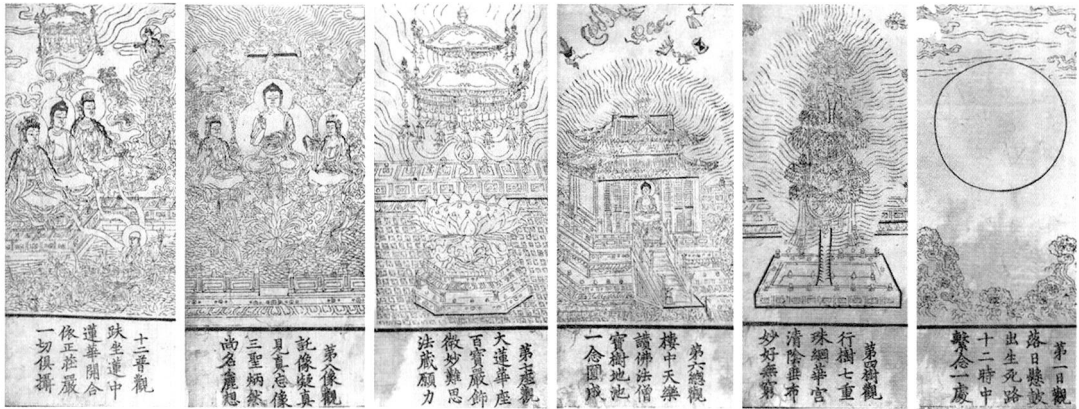 第一日觀
落日懸鼓
出生死路
十二時中
繫念一處
第四樹觀
行樹七重
珠網華宮
清陰垂布
妙好無窮
第六總觀
樓中天樂
讚佛法僧
寶樹地池
一念圓成
第七座觀
大蓮華座
百寶嚴飾
微妙難思
法藏願力
第八像觀
託像凝真
見真忘像
三聖炳然
尚名麁想
十二普觀
趺坐蓮中
蓮華開合
依正莊嚴
一切俱攝